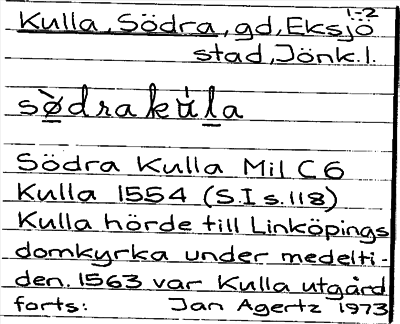 1-2
Kulla, Södra, gd, Eksjö
stad, Jönk.l.
sø̀drakù̶la
Södra Kulla Mil C6
Kulla 1554 (S.I s.118)
Kulla hörde till Linköpings
domkyrka under medelti-
den. 1563 var Kulla utgård
forts: Jan Agertz 1973